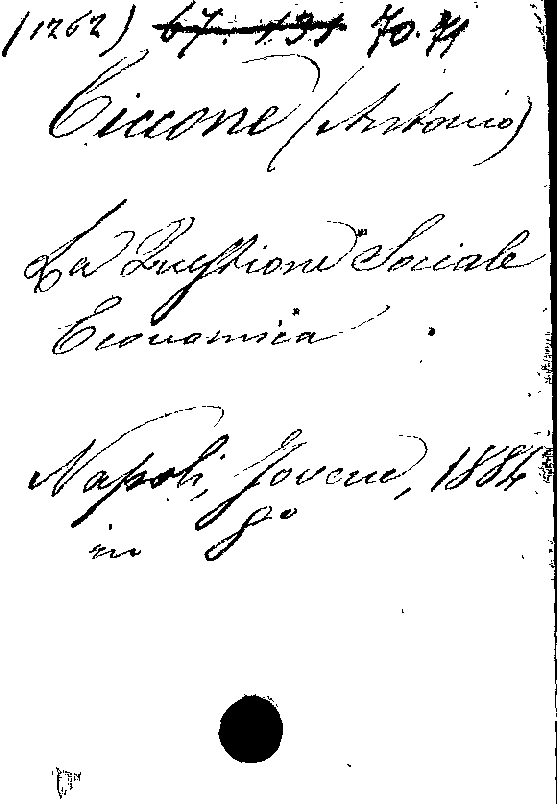 (1262) 67. 131 70. 71
Ciccone (Antonio)
La Questione Sociale
Economica.
Napoli, Jovene, 1884
in 8º